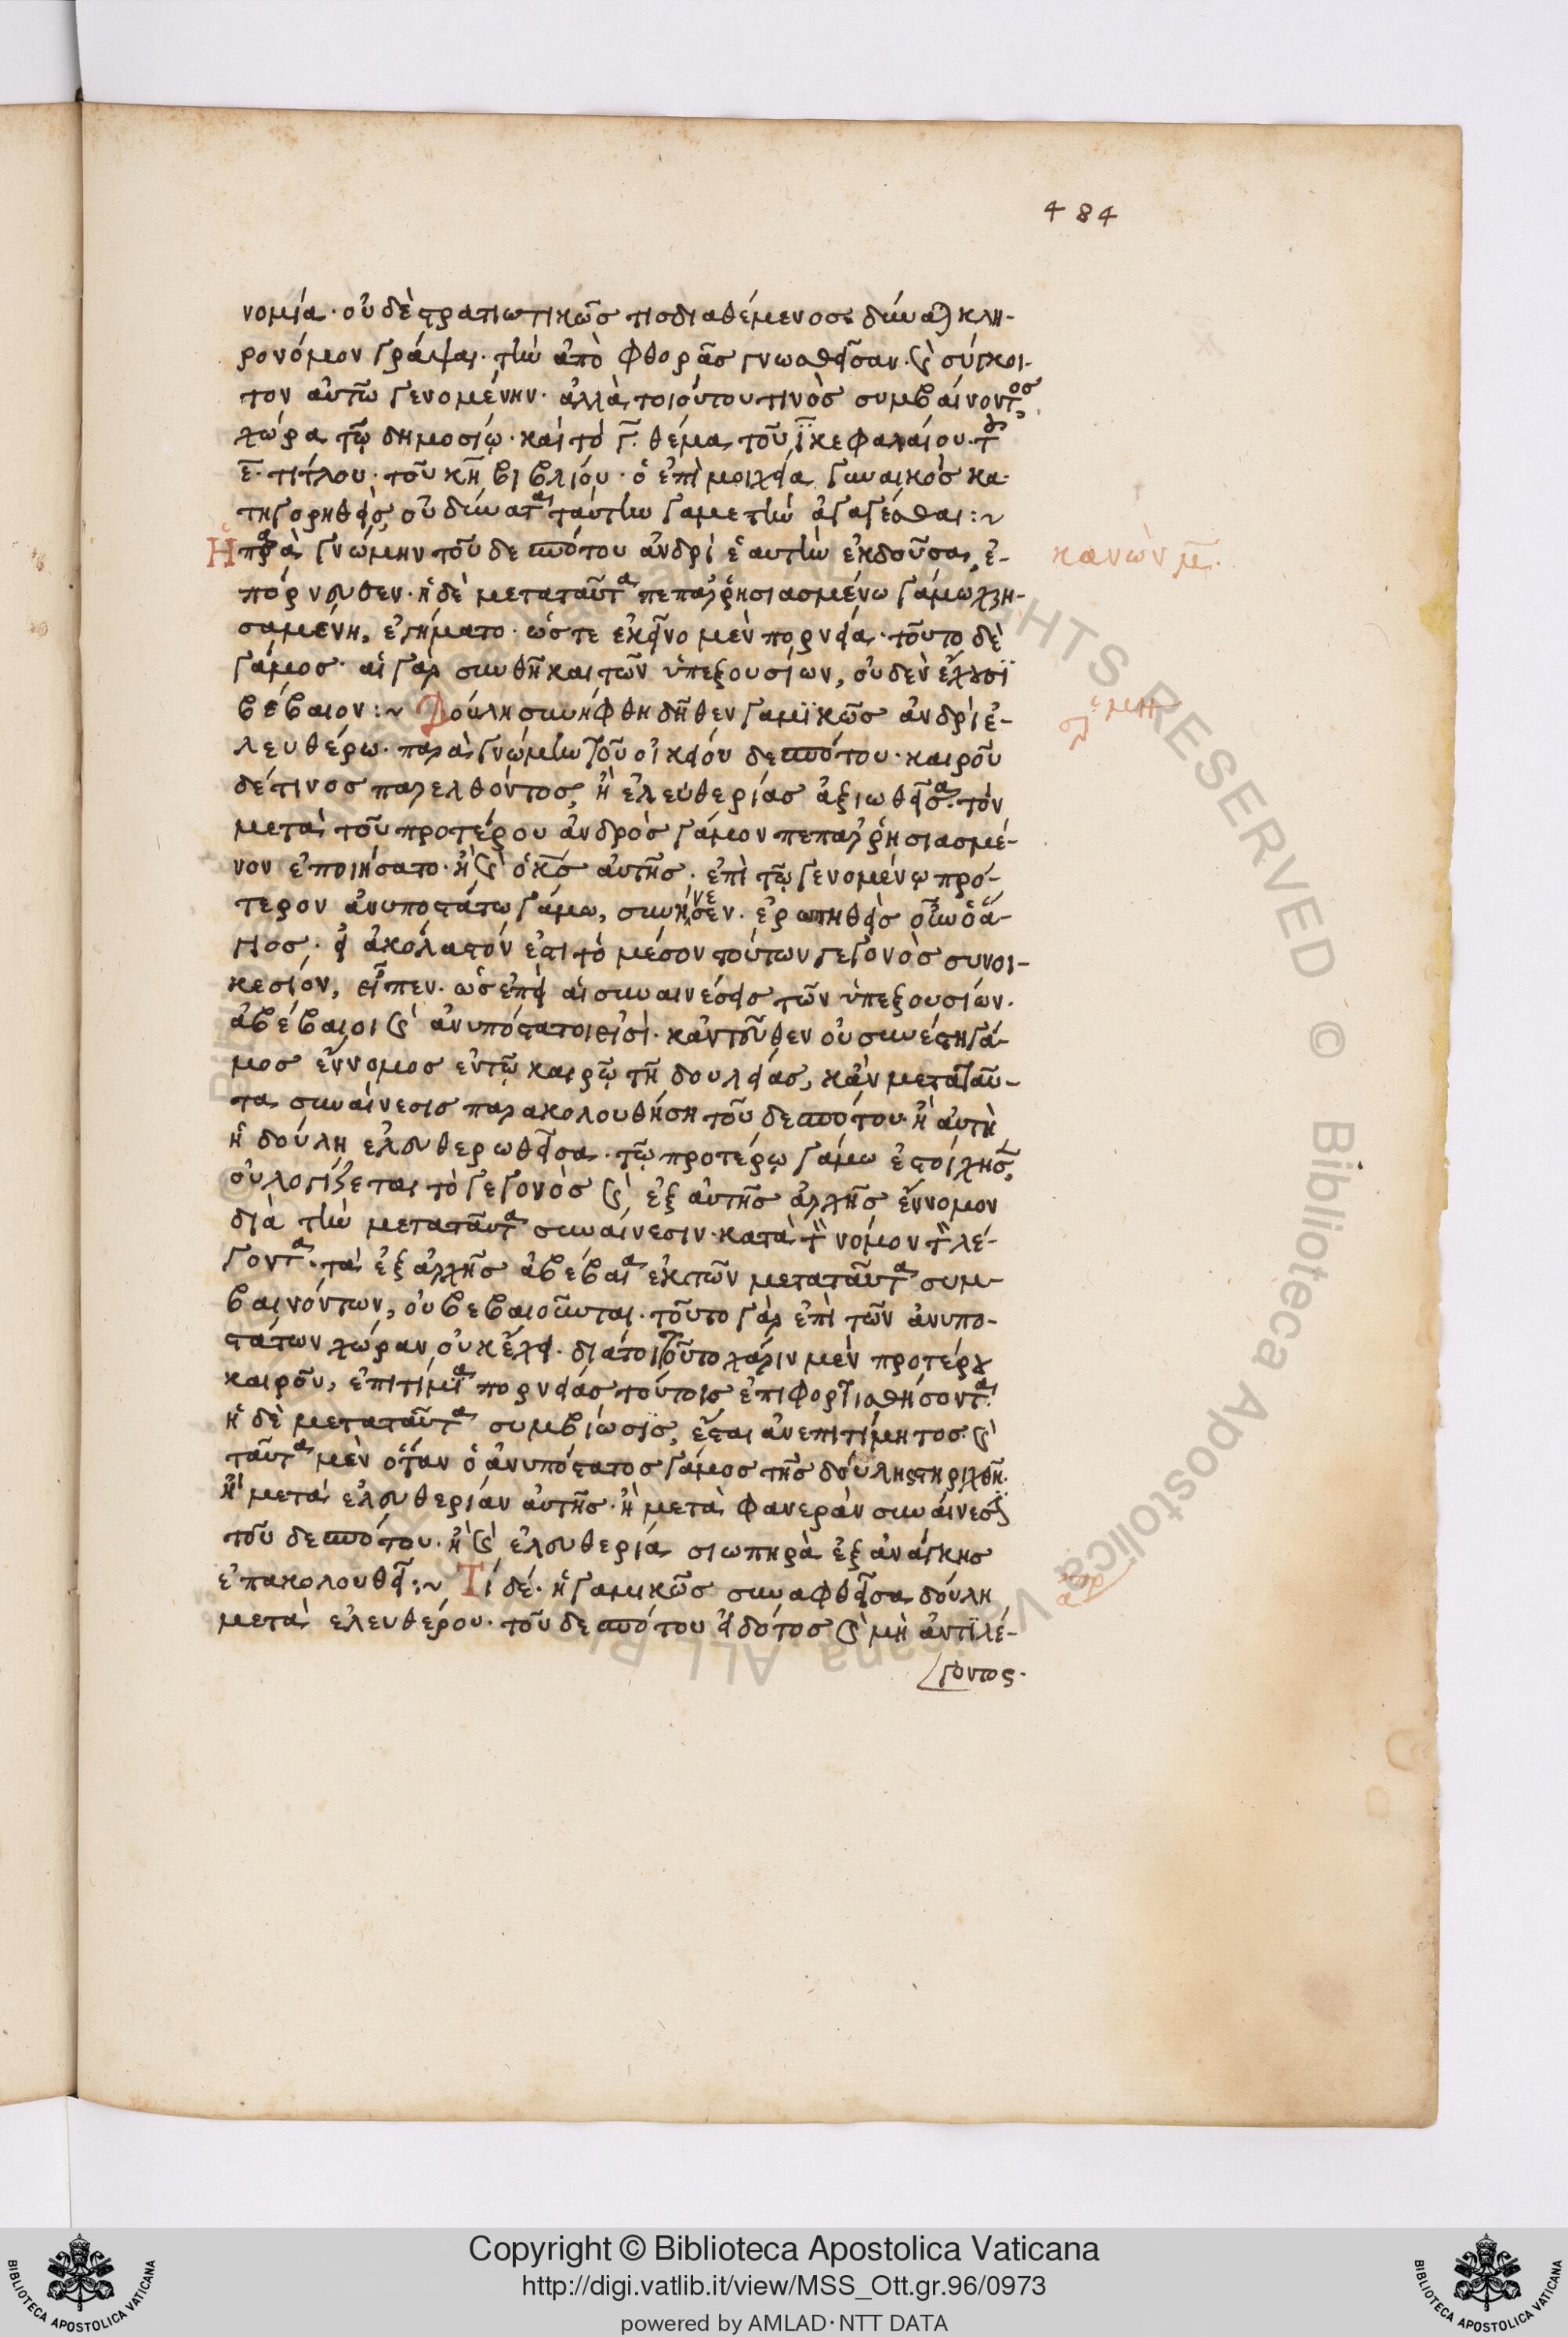 484
νομία· οὐδὲ στρατιωτικῶς τὶς διαθέμενος δύναται κλη-
ρονόμον γράψαι· τὴν ἀπὸ φθορᾶς γνωσθεῖσαν· καὶ σύγκοι-
τον αὐτῶ γενομένην· ἀλλὰ τοιούτου τινὸς συμβαίνοντος,
χώρα τῶ δημοσίω· καὶ τὸ γ̅. θέμα τοῦ ι̅ κεφαλαίου· τοῦ
ε̅· τίτλου· τοῦ κη̅ βιβλίου· ὁ ἐπὶ μοιχεία γυναικὸς κα-
τηγορηθεὶς, οὐ δύναται ταύτην γαμετὴν ἀγαγέσθαι:~
Ἡ παρὰ γνώμην τοῦ δεσπότου ἀνδρὶ ἑαυτὴν ἐκδοῦσα, ἐ-
κανὼν μ̅.
πόρνευσεν· ἡ δὲ μεταταῦτα πεπαρρησιασμένω γάμω χρη-
σαμένη, ἐγήματο· ὥστε ἐκεῖνο μὲν πορνεία· τοῦτο δὲ
γάμος· αἱ γὰρ συνθῆκαι τῶν ὑπεξουσίων, οὐδὲν ἔχουσι
βέβαιον:~ Δούλη συνήφθη δῆθεν γαμικῶς ἀνδρὶ ἐ-
ἑρμη
λευθέρω· παρὰ γνώμην τοῦ οἰκείου δεσπότου· καιροῦ
δέ τινος παρελθόντος, ἢ ἐλευθερίας ἀξιωθεῖσα· τὸν
μετὰ τοῦ προτέρου ἀνδρὸς γάμον πεπαρρησιασμέ-
νον ἐποιήσατο· ἢ καὶ ὁ κύριος αὐτῆς· ἐπὶ τῶ γενομένω πρό-
τερον ἀνυποστάτω γάμω, συνήνεσεν· ἐρωτηθεὶς οὖν ὁ ἅ-
γιος· εἰ ἀκόλαστόν ἐστι τὸ μέσον τούτων γεγονὸς συνοι-
κεσίον, εἶπεν· ὡς ἐπεὶ αἱ συναινέσεις τῶν ὑπεξουσίων·
ἀβέβαιοι καὶ ἀνυπόστατοι εἰσὶ· κἀντεῦθεν οὐ συνέστη γά-
μος ἔννομος ἐν τῶ καιρῶ τῆς δουλείας, κἂν μετὰ ταῦ-
τα συναίνεσις παρακολουθήση τοῦ δεσπότου· ἢ αὐτὴ
ἡ δούλη ἐλευθερωθεῖσα· τῶ προτέρω γάμω ἐστοίχησεν,
οὐ λογίζεται τὸ γεγονὸς καὶ ἐξ αὐτῆς ἀρχῆς ἔννομον
διὰ τὴν μεταταῦτα συναίνεσιν· κατὰ τὸν νόμον τὸν λέ-
γοντα· τὰ ἐξ ἀρχῆς ἀβέβαια ἐκ τῶν μεταταῦτα συμ-
βαινόντων, οὐ βεβαιοῦνται· τοῦτο γὰρ ἐπὶ τῶν ἀνυπο-
στάτων χώραν οὐκ ἔχει· διάτοι τοῦτο χάριν μὲν προτέρου
καιροῦ, ἐπιτίμια πορνείας τούτοις ἐπιφορτισθήσονται·
ἡ δὲ μεταταῦτα συμβίωσις, ἔσται ἀνεπιτίμητος· καὶ
ταῦτα μὲν ὅταν ὁ ἀνυπόστατος γάμος τῆς δούλης στηριχθῆ·
ἢ μετὰ ἐλευθερίαν αὐτῆς· ἢ μετὰ φανερὰν συναίνεσιν
τοῦ δεσπότου· ἢ καὶ ἐλευθερία σιωπηρὰ ἐξ ἀνάγκης
ἐπακολουθεῖ:~ Τί δέ· ἡ γαμικῶς συναφθεῖσα δούλη
μετὰ ἐλευθέρου· τοῦ δεσπότου εἰδότος καὶ μὴ ἀντιλέ-
γοντος·
Copyright © Biblioteca Apostolica Vaticana
http://digi.vatlib.it/view/MSS_Ott.gr.96/0973
powered by AMLAD·NTT DATA